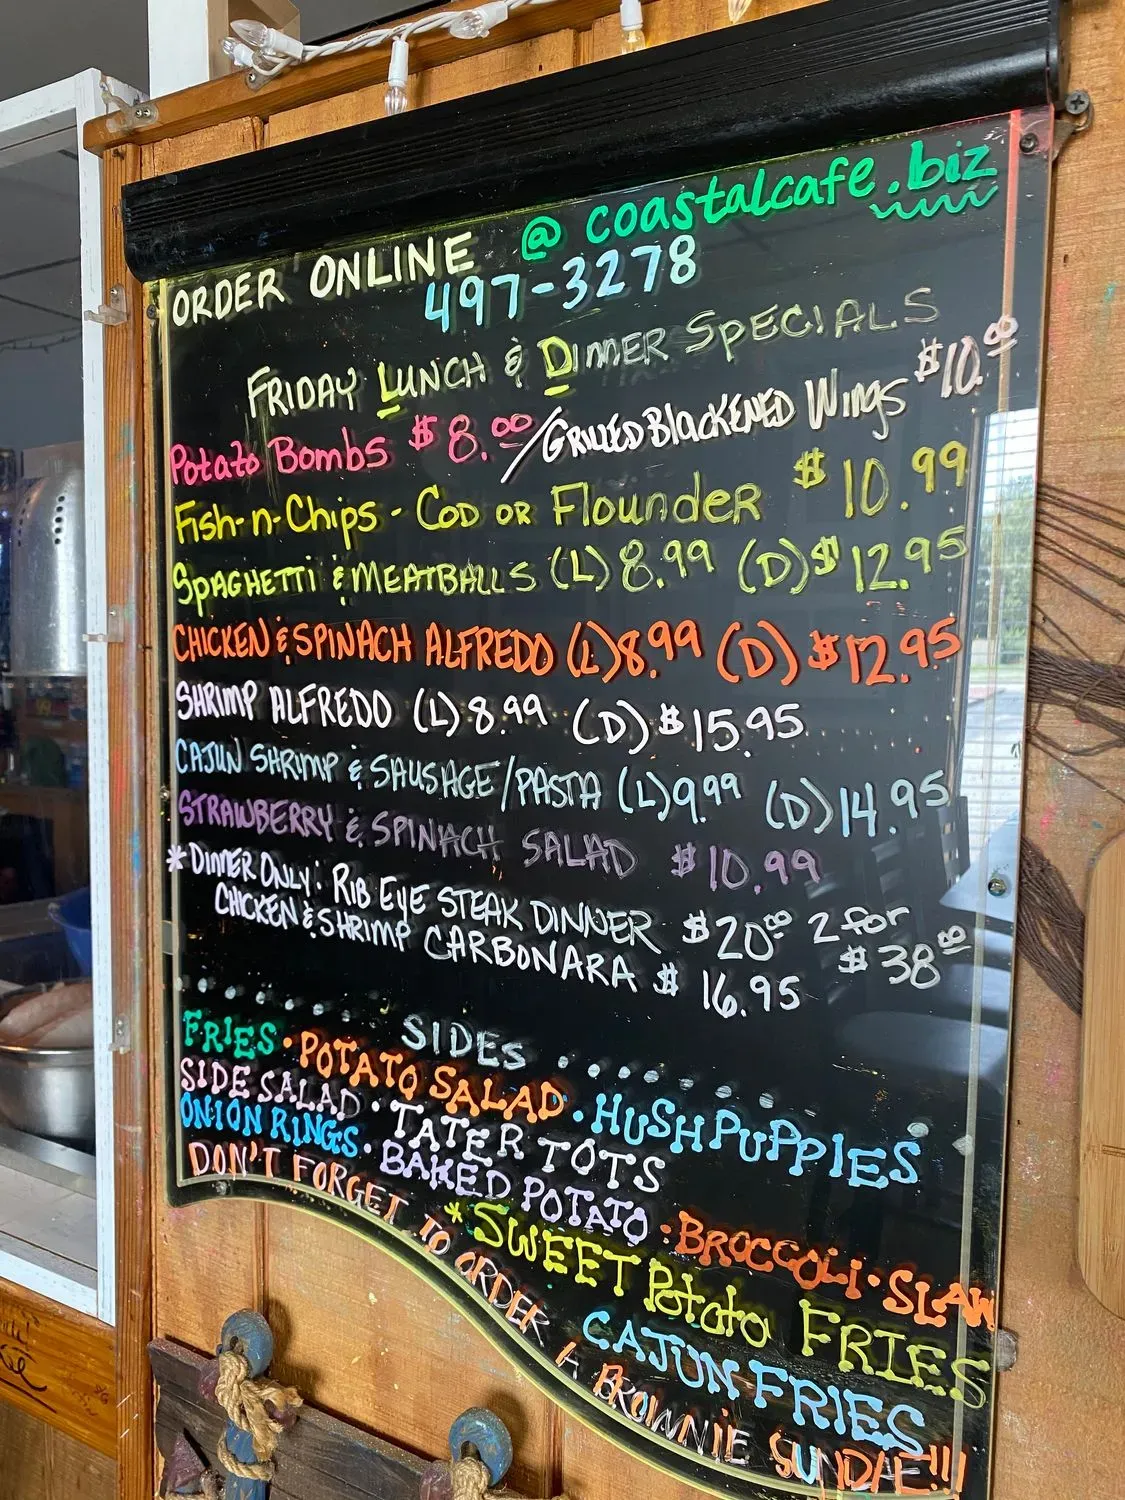 ORDER ONLINE @ coastalcafe.biz
497-3278
FRIDAY LUNCH & DINNER SPECIALS
Potato Bombs $8.00/GRILLED BLACKENED WINGS $10.00
Fish-n-Chips - COD OR Flounder $10.99
SPAGHETTI & MEATBALLS (L) 8.99 (D) $12.95
CHICKEN & SPINACH ALFREDO (L) 8.99 (D) $12.95
SHRIMP ALFREDO (L) 8.99 (D) $15.95
CAJUN SHRIMP & SAUSAGE/PASTA (L) 9.99 (D) 14.95
STRAWBERRY & SPINACH SALAD $10.99
*DINNER ONLY: RIB EYE STEAK DINNER $20.00 2 for $38.00
CHICKEN & SHRIMP CARBONARA $16.95
SIDES
FRIES • POTATO SALAD • HUSHPUPPIES
SIDE SALAD • TATER TOTS
ONION RINGS • BAKED POTATO • BROCCOLI • SLAW
*SWEET Potato FRIES
CAJUN FRIES
DON'T FORGET TO ORDER A BROWNIE SUNDAE!!!